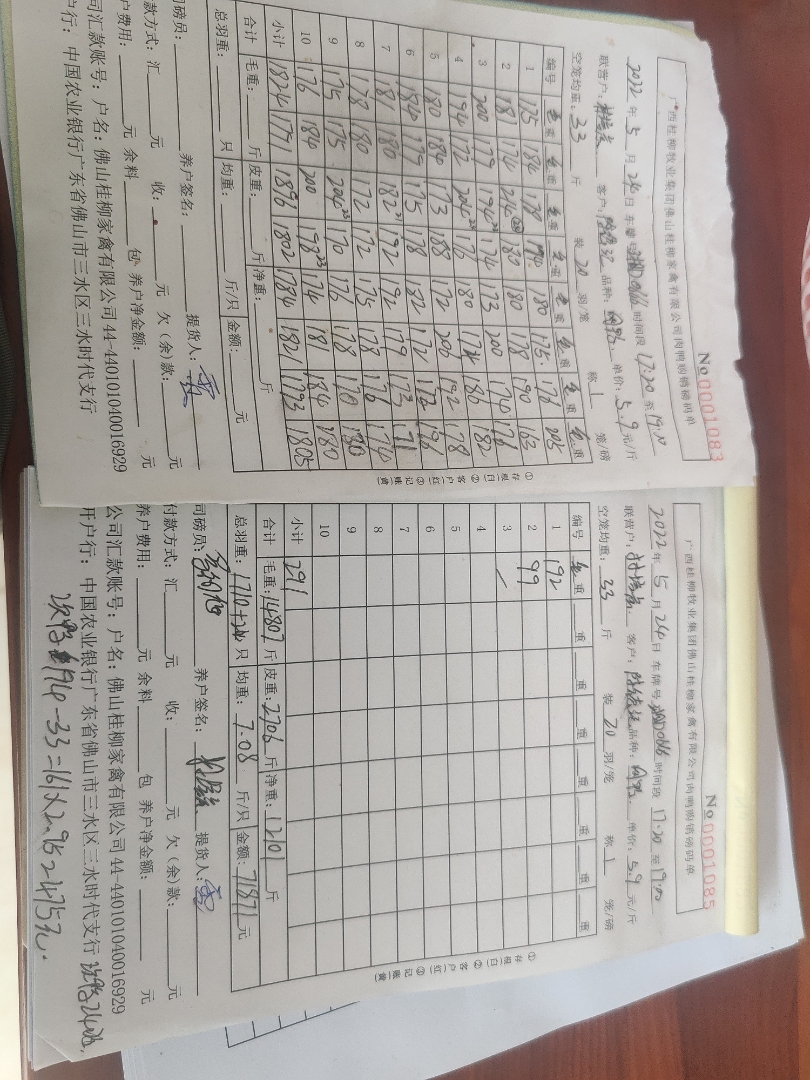 广西桂柳牧业集团佛山桂柳家禽有限公司肉鸭购销磅码单
No 0001083
2022 年 5 月 24 日 车牌号 时间段 17:20 至 19:00
联营户: 客户: 品种: 单价: 5.9 元/斤
空笼均重: 33 斤 装 20 羽/笼 称 1 笼/磅
编号 重 重 重 重 重 重 重 重
1 175 184 178 190 180 175 176 205
2 181 174 214 180 180 178 190 163
3 200 179 196 174 173 200 174 176
4 194 172 204 176 180 174 186 182
5 180 184 173 188 206 192 178
6 184 175 175 178 182 172 172 196
7 181 180 182 192 192 179 173 171
8 178 180 172 172 175 178 176 174
9 175 175 204 170 176 178 170 180
10 176 184 200 178 174 181 184 180
小计 1824 1771 1896 1802 1784 1821 1793 1805
合计 毛重: 斤 皮重: 斤 净重: 斤
总羽重: 只 均重: 斤/只 金额: 元
①存根(白) ②客户(红) ③记账(黄)
司磅员: 养户签名: 提货人:
付款方式: 汇 元 收: 元 欠(余)款: 元
养户费用: 元 余料 包 养户净金额: 元
公司汇款账号: 户名: 佛山桂柳家禽有限公司 44-440101040016929
开户行: 中国农业银行广东省佛山市三水区三水时代支行
广西桂柳牧业集团佛山桂柳家禽有限公司肉鸭购销磅码单
No 0001085
2022 年 5 月 24 日 车牌号 时间段 17:20 至 19:00
联营户: 客户: 品种: 单价: 5.9 元/斤
空笼均重: 33 斤 装 20 羽/笼 称 1 笼/磅
编号 重 重 重 重 重 重 重 重
1 192
2 99
3
4
5
6
7
8
9
10
小计 291
合计 毛重: 14807 斤 皮重: 2706 斤 净重: 12101 斤
总羽重: 1710+24 只 均重: 7.08 斤/只 金额: 71871 元
①存根(白) ②客户(红) ③记账(黄)
司磅员: 养户签名: 提货人:
付款方式: 汇 元 收: 元 欠(余)款: 元
养户费用: 元 余料 包 养户净金额: 元
公司汇款账号: 户名: 佛山桂柳家禽有限公司 44-440101040016929
开户行: 中国农业银行广东省佛山市三水区三水时代支行 次鸭24只,
次鸭194-33=161×2.95=475元.